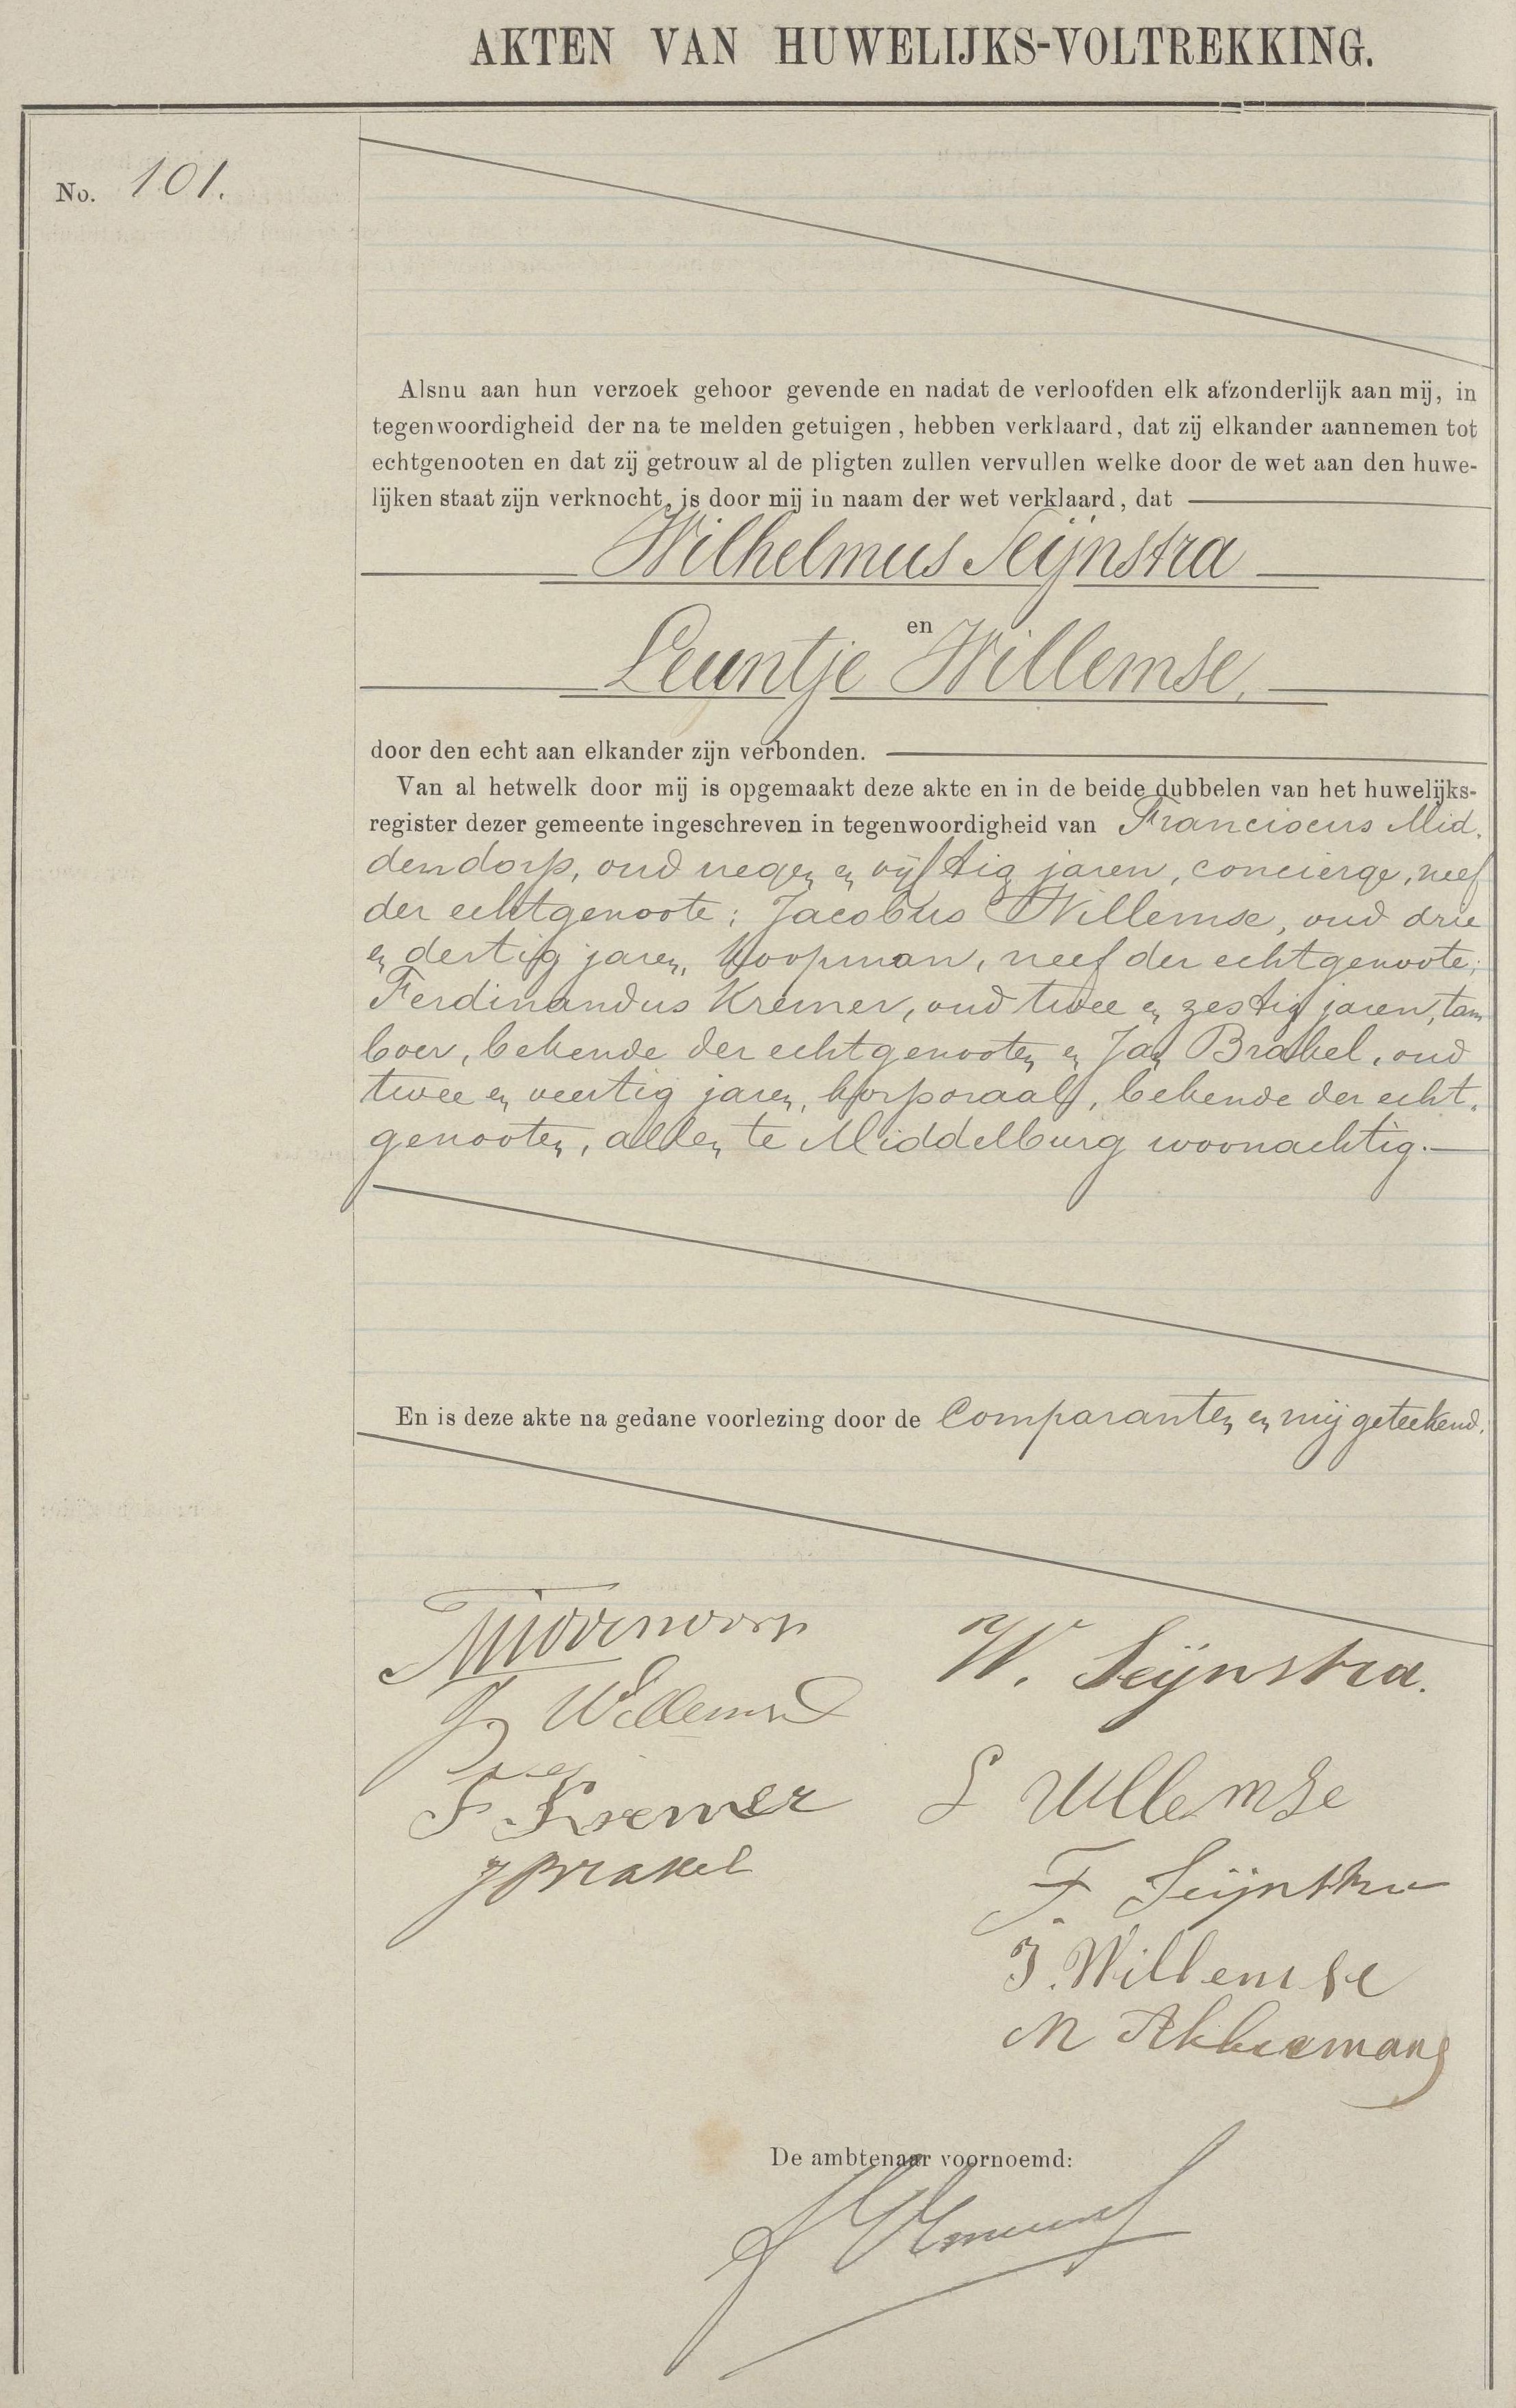 AKTEN VAN HUWELIJKS-VOLTREKKING.
No. 101.
Alsnu aan hun verzoek gehoor gevende en nadat de verloofden elk afzonderlijk aan mij, in
tegenwoordigheid der na te melden getuigen, hebben verklaard, dat zij elkander aannemen tot
echtgenooten en dat zij getrouw al de pligten zullen vervullen welke door de wet aan den huwe-
lijken staat zijn verknocht, is door mij in naam der wet verklaard, dat
Wilhelmus Seijnstra
en
Leuntje Willemse,
door den echt aan elkander zijn verbonden.
Van al hetwelk door mij is opgemaakt deze akte en in de beide dubbelen van het huwelijks-
register dezer gemeente ingeschreven in tegenwoordigheid van Franciscus Mid-
dendorp, oud negen en vijftig jaren, concierge, neef
der echtgenoote; Jacobus Willemse, oud drie
en dertig jaren, koopman, neef der echtgenoote;
Ferdinandus Kremer, oud twee en zestig jaren, tam
boer, bekende der echtgenooten en Jan Brakel, oud
twee en veertig jaren, korporaal, bekende der echt-
genooten, allen te Middelburg woonachtig.
En is deze akte na gedane voorlezing door de Comparanten en mij geteekend.
Middendorp
W. Seijnstra.
J Willemse
F. Kremer
L Willemse
J Brakel
F Seijnstra
J. Willemse
M Akkermans
De ambtenaar voornoemd: